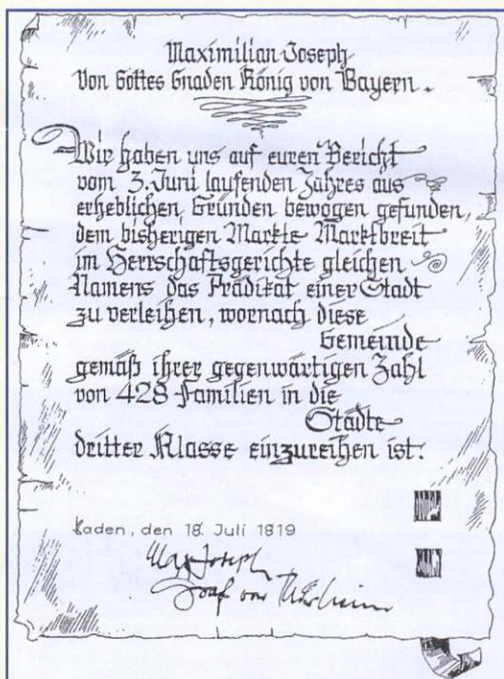 Maximilian Joseph
Von Gottes Gnaden König von Bayern.
Wir haben uns auf euren Bericht
vom 3. Juni laufenden Jahres aus
erheblichen Gründen bewogen gefunden,
dem bisherigen Markte Marktbreit
im Herrschaftsgerichte gleichen
Namens das Prädikat einer Stadt
zu verleihen, wornach diese
Gemeinde
gemäß ihrer gegenwärtigen Zahl
von 428 Familien in die
Städte
dritter Klasse einzureihen ist.
Baden, den 18. Juli 1819
Max Joseph
Graf von